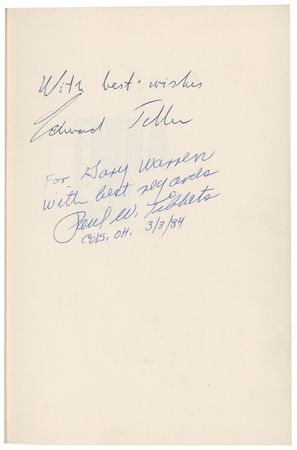 With best wishes
Edward Teller
For Gary Warren
with best regards
Paul W. Tibbets
COLS. OH. 3/3/84